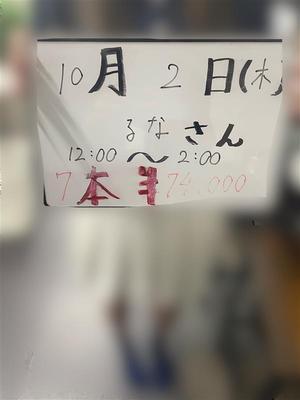 10月2日(木)
るなさん
12:00〜2:00
7本半74,000